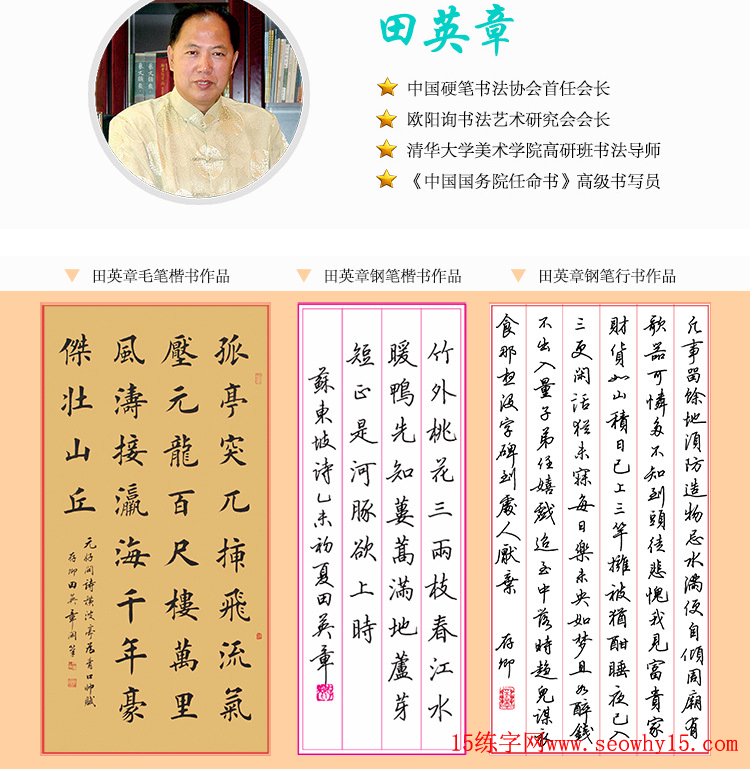 田英章
中国硬笔书法协会首任会长
欧阳询书法艺术研究会会长
清华大学美术学院高研班书法导师
《中国国务院任命书》高级书写员
田英章毛笔楷书作品
田英章钢笔楷书作品
田英章钢笔行书作品
孤亭突兀插飛流氣
壓元龍百尺樓萬里
風濤接瀛海千年豪
傑壮山丘
元好問詩橫波亭為青口帥賦
存卿田英章
竹外桃花三兩枝春江水
暖鴨先知蔞蒿滿地蘆芽
短正是河豚欲上時
蘇東坡詩乙未初夏田英章
凡事留餘地須防造物忌水滿便自傾周廟有
欹器可憐多不知到頭徒悲愧我見富貴家
財貨如山積日已上三竿擁被猶酣睡夜已入
三更閑話猶未寐每日樂未央如梦且如醉錢
不出入量子弟任嬉戲迨至中落時謀衣
食那想没字碑到處人厭棄 存卿
15练字网www.seowhy15.com